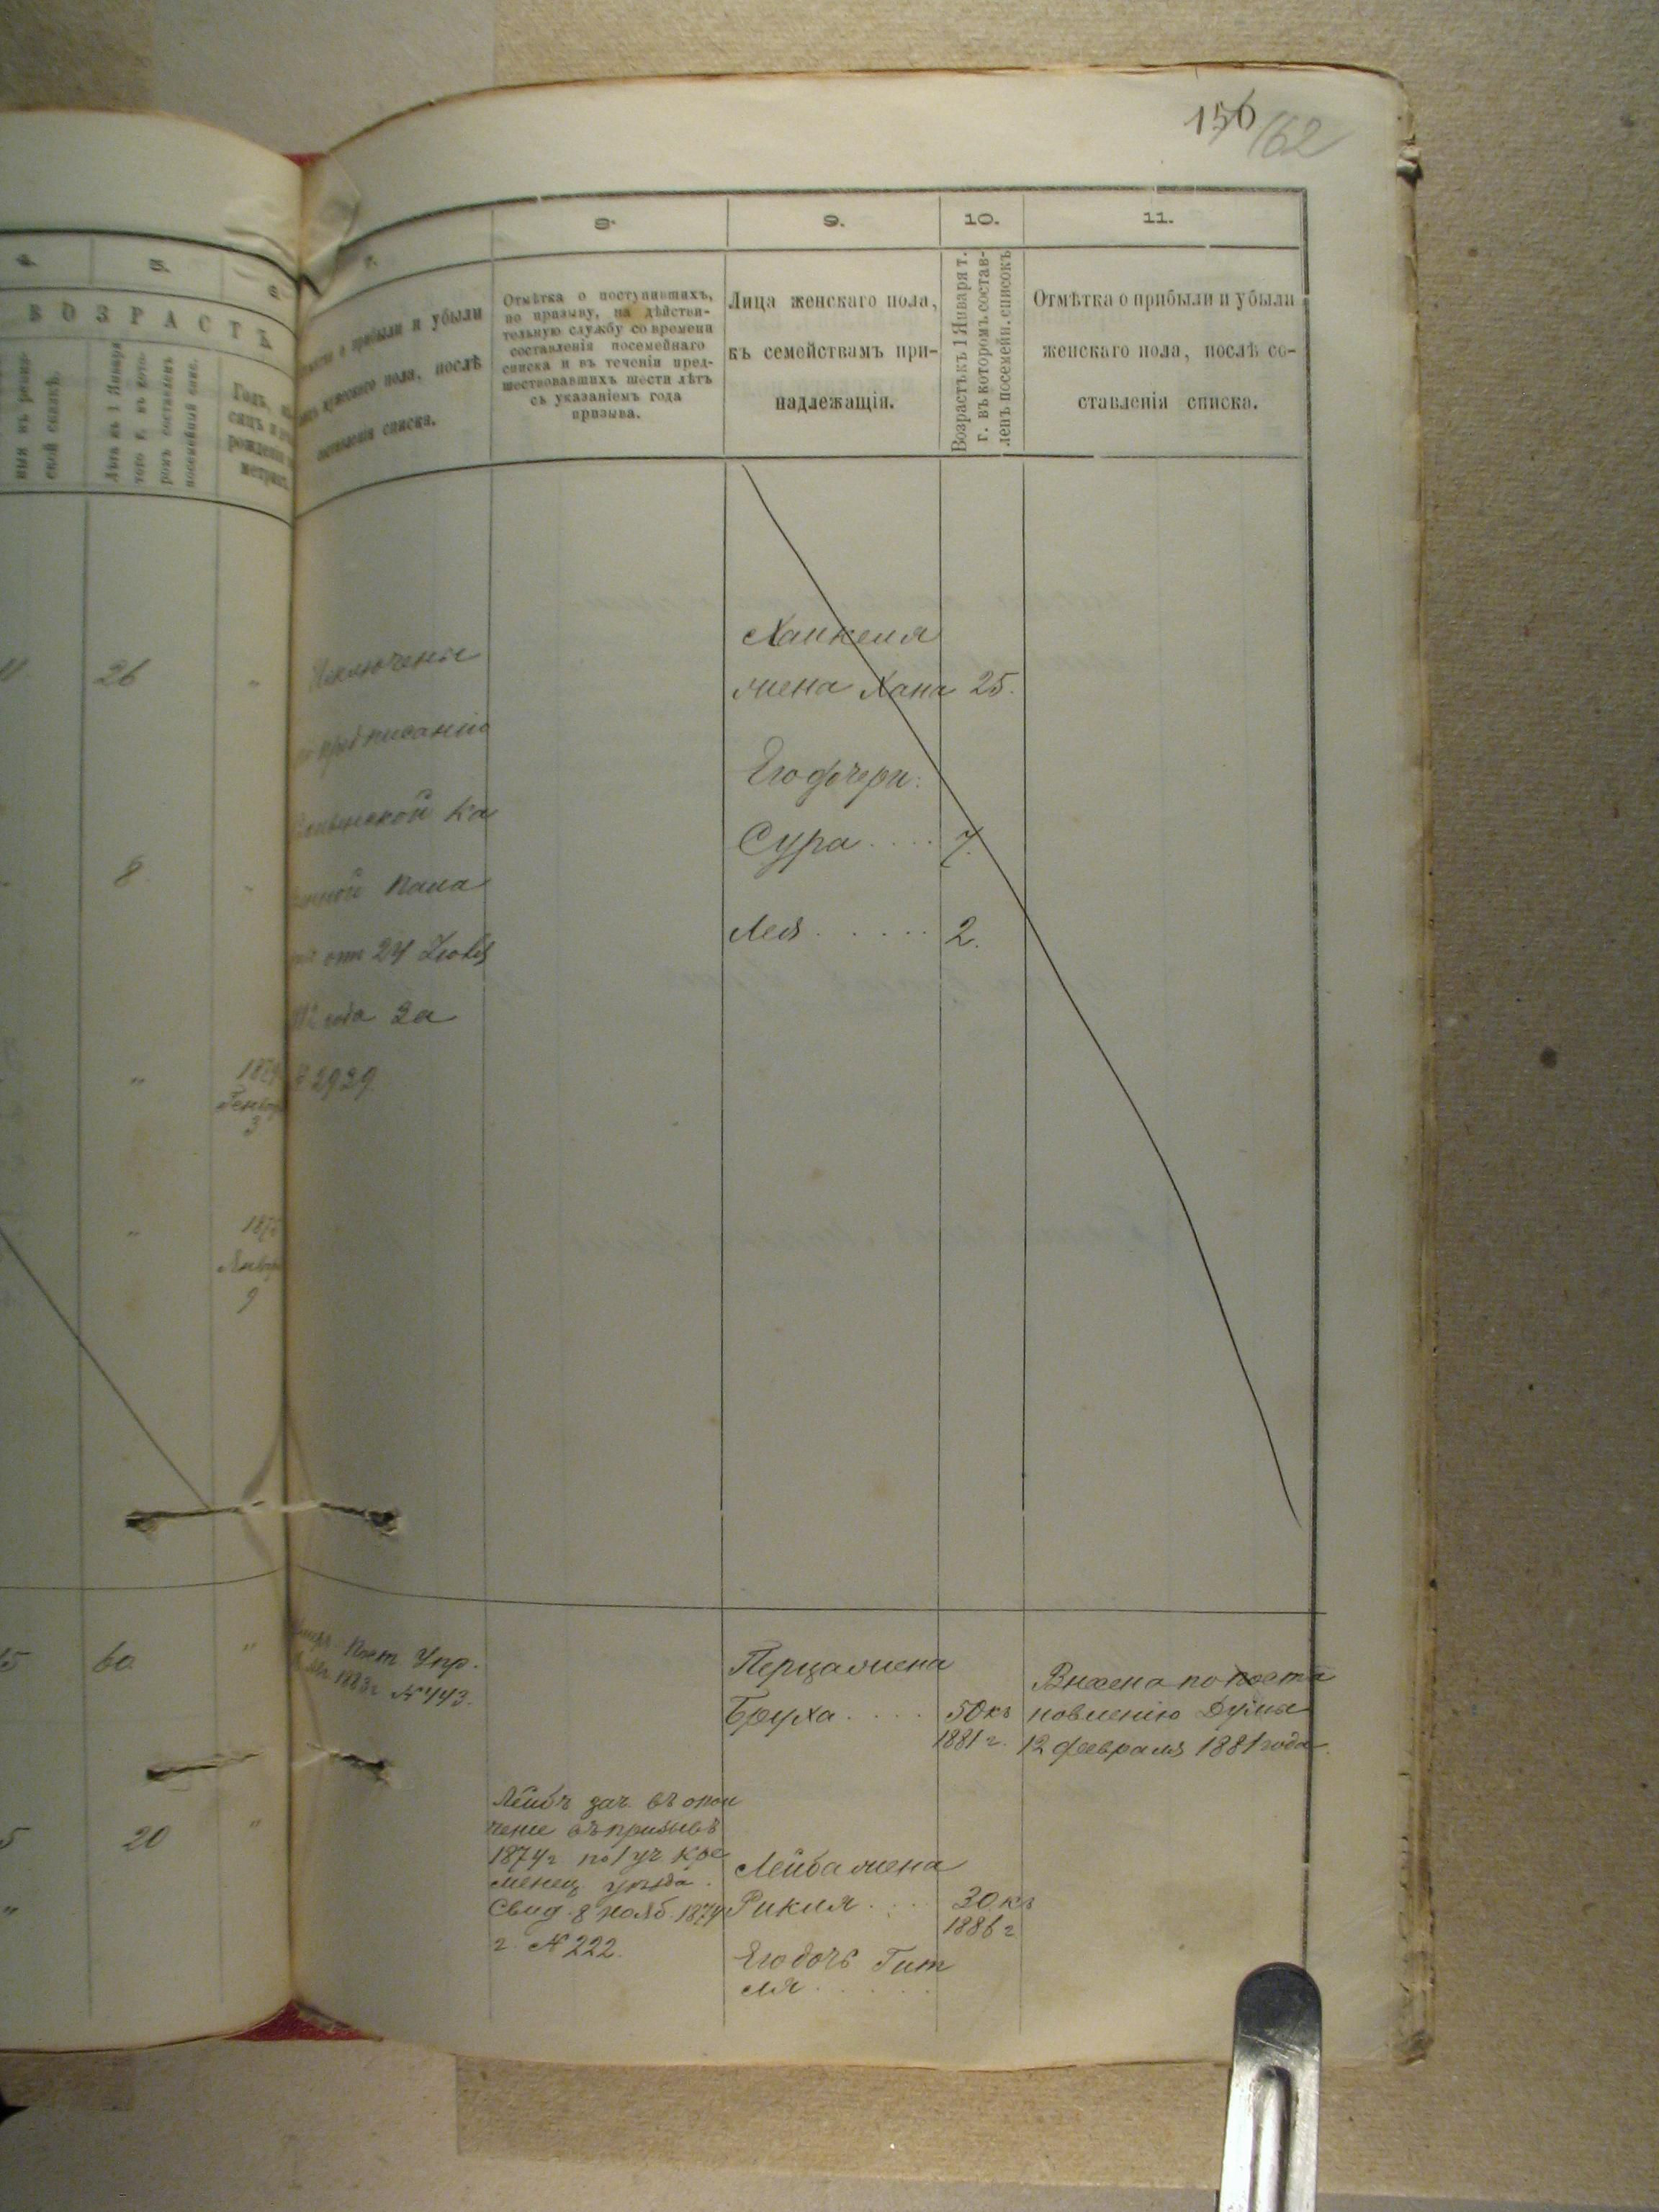 156
162
4.
5.
6
7.
8.
9.
10.
11.
ВОЗРАСТЪ
Лѣтъ къ 1 Января
Годъ,
рожденія
о прибыли и убыли
мужескаго пола, послѣ
составленія списка.
Отмѣтка о поступившихъ,
по призыву, на дѣйстви-
тельную службу со времени
составленія посемейнаго
списка и въ теченіи пред-
шествовавшихъ шести лѣтъ
съ указаніемъ года
призыва.
Лица женскаго пола,
къ семействамъ при-
надлежащія.
Возрастъ къ 1 Января т.
г. въ которомъ состав-
ленъ посемейн. списокъ
Отмѣтка о прибыли и убыли
женскаго пола, послѣ со-
ставленія списка.
26
Исключены
предписанію
Ка
8
Пала
от 24
года за
2929
1879
Генвар
3
Январ
9
Ханкеля
жена Хана 25.
Его дочери:
Сура . . . . 7.
Лея . . . . . 2.
60
Пост Упр.
1883 г. № 443.
Перца жена
Бруха . . . . 50 къ
1881 г.
Внесена по поста
новленію Думы
12 февраля 1881 года.
20
Лейбъ зач. въ опол
ченіе въ призывъ
1874 г. по 1 уч. Кре
менец. уѣзда.
Свид. 8 нояб. 1874
г. № 222.
Лейба жена
Рикля . . . . 30 къ
1886 г
Его дочь Гит
ля . . . . .